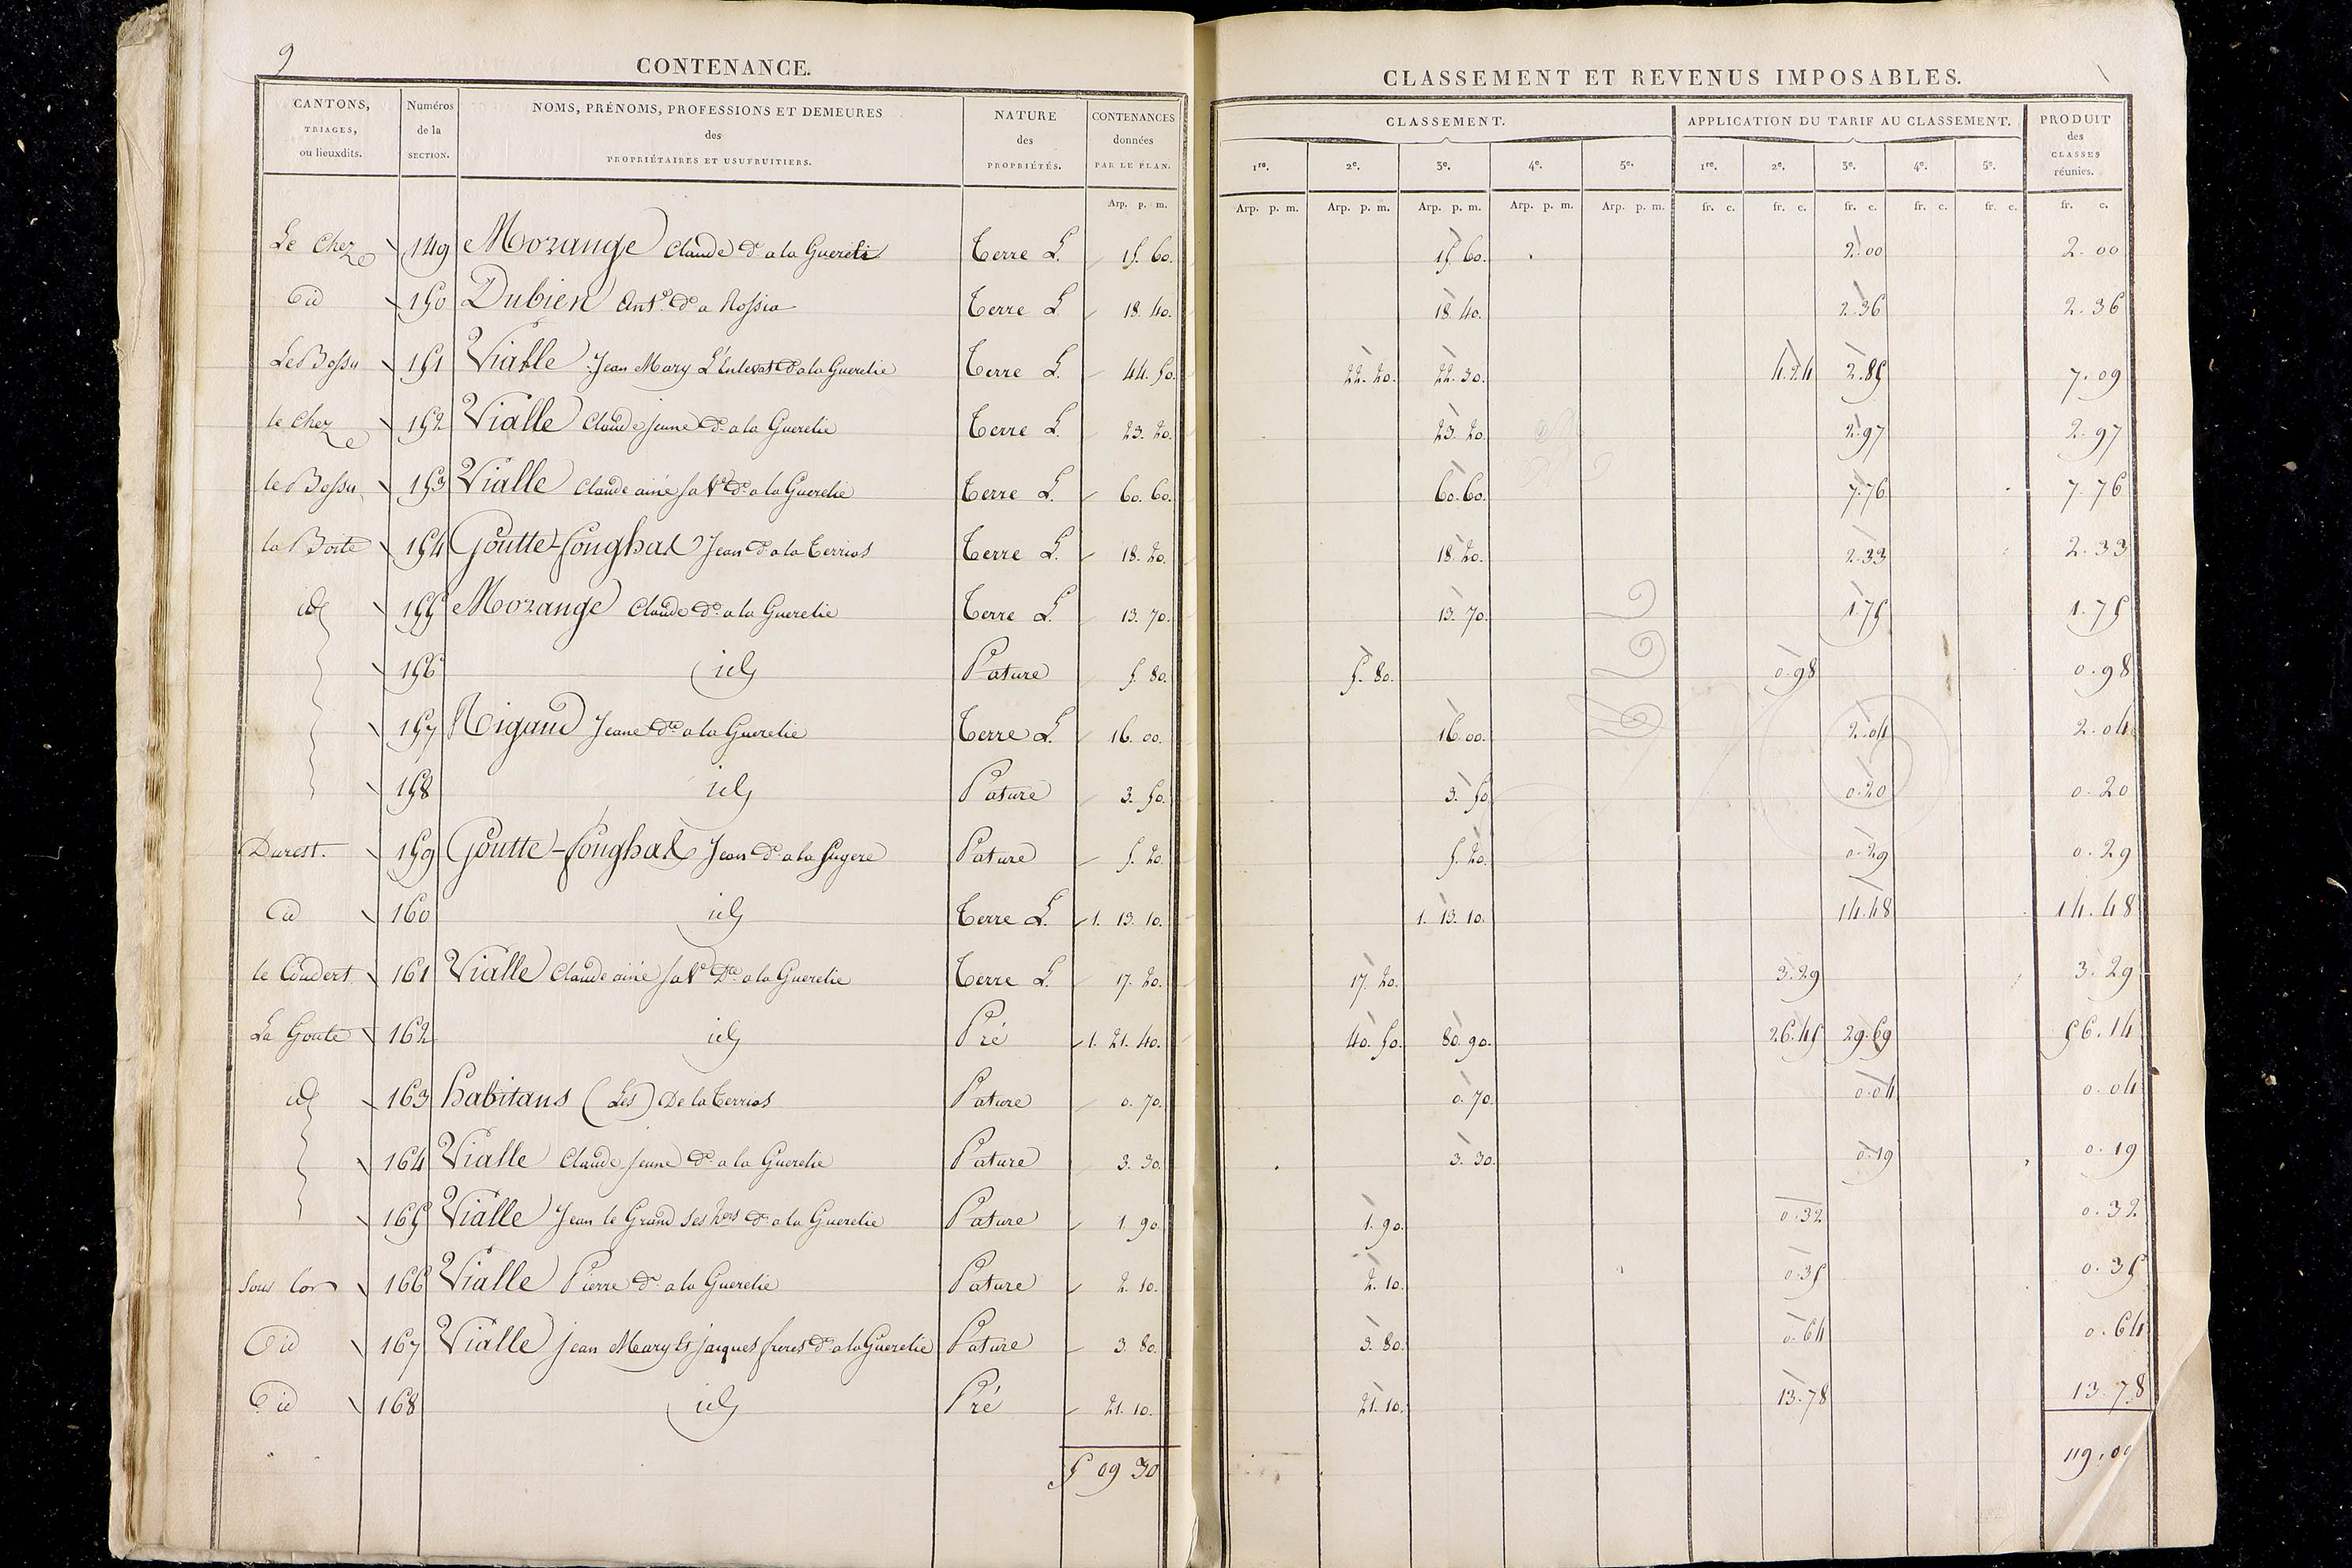 9
CONTENANCE.
CANTONS, TRIAGES, ou lieuxdits. | Numéros de la SECTION. | NOMS, PRÉNOMS, PROFESSIONS ET DEMEURES des PROPRIÉTAIRES ET USUFRUITIERS. | NATURE des PROPRIÉTÉS. | CONTENANCES données PAR LE PLAN.
Arp. p. m.
Le Chez 149 Morange Claude d. a la Guerelie Terre L. 15. 60.
id 150 Dubien Ant.e d. a Rossia Terre L. 18. 40.
Le Bossu 151 Vialle Jean Mary d. a la Guerelie Terre L. 44. 50.
le Chez 152 Vialle Claude jeune d. a la Guerelie Terre L. 23. 20.
le Bossu 153 Vialle Claude ainé sa Ve d. a la Guerelie Terre L. 60. 60.
la Boste 154 Goutte-fonghal Jean d. a la Terrias Terre L. 18. 20.
id 155 Morange Claude d. a la Guerelie Terre L. 13. 70.
156 id Pature 5. 80.
157 Rigaud Jeane d. a la Guerelie Terre L. 16. 00.
158 id Pature 3. 50.
Durest. 159 Goutte-fonghal Jean d. a la fugere Pature 5. 20.
id 160 id Terre L. 1. 13. 10.
le Coudert 161 Vialle Claude ainé sa Ve d. a la Guerelie Terre L. 17. 20.
La Goute 162 id Pré 1. 21. 40.
id 163 habitans (Les) De la Terrias Pature 0. 70.
164 Vialle Claude Jeune d. a la Guerelie Pature 3. 30.
165 Vialle Jean le Grand ses hers d. a la Guerelie Pature 1. 90.
Sous lor 166 Vialle Pierre d. a la Guerelie Pature 2. 10.
id 167 Vialle jean Mary et jacques freres d. a la Guerelie Pature 3. 80.
id 168 id Pré 21. 10.
5 09 30
CLASSEMENT ET REVENUS IMPOSABLES.
CLASSEMENT. | APPLICATION DU TARIF AU CLASSEMENT. | PRODUIT des CLASSES réunies.
1re. 2e. 3e. 4e. 5e. 1re. 2e. 3e. 4e. 5e.
Arp. p. m. Arp. p. m. Arp. p. m. Arp. p. m. Arp. p. m. fr. c. fr. c. fr. c. fr. c. fr. c. fr. c.
15. 60. 2.00 2.00
18. 40. 2.36 2.36
22. 20. 22. 30. 4.24 2.85 7.09
23. 20. 2.97 2.97
60. 60. 7.76 7.76
18. 20. 2.33 2.33
13. 70. 1.75 1.75
5. 80. 0.98 0.98
16. 00. 2.04 2.04
3. 50 0.20 0.20
5. 20. 0.29 0.29
1. 13. 10. 14.48 14.48
17. 20. 3.29 3.29
40. 50. 80. 90. 26.45 29.69 56.14
0. 70. 0.04 0.04
3. 30. 0.19 0.19
1. 90. 0.32 0.32
2. 10. 0.35 0.35
3. 80. 0.64 0.64
21. 10. 13.78 13.78
119.00